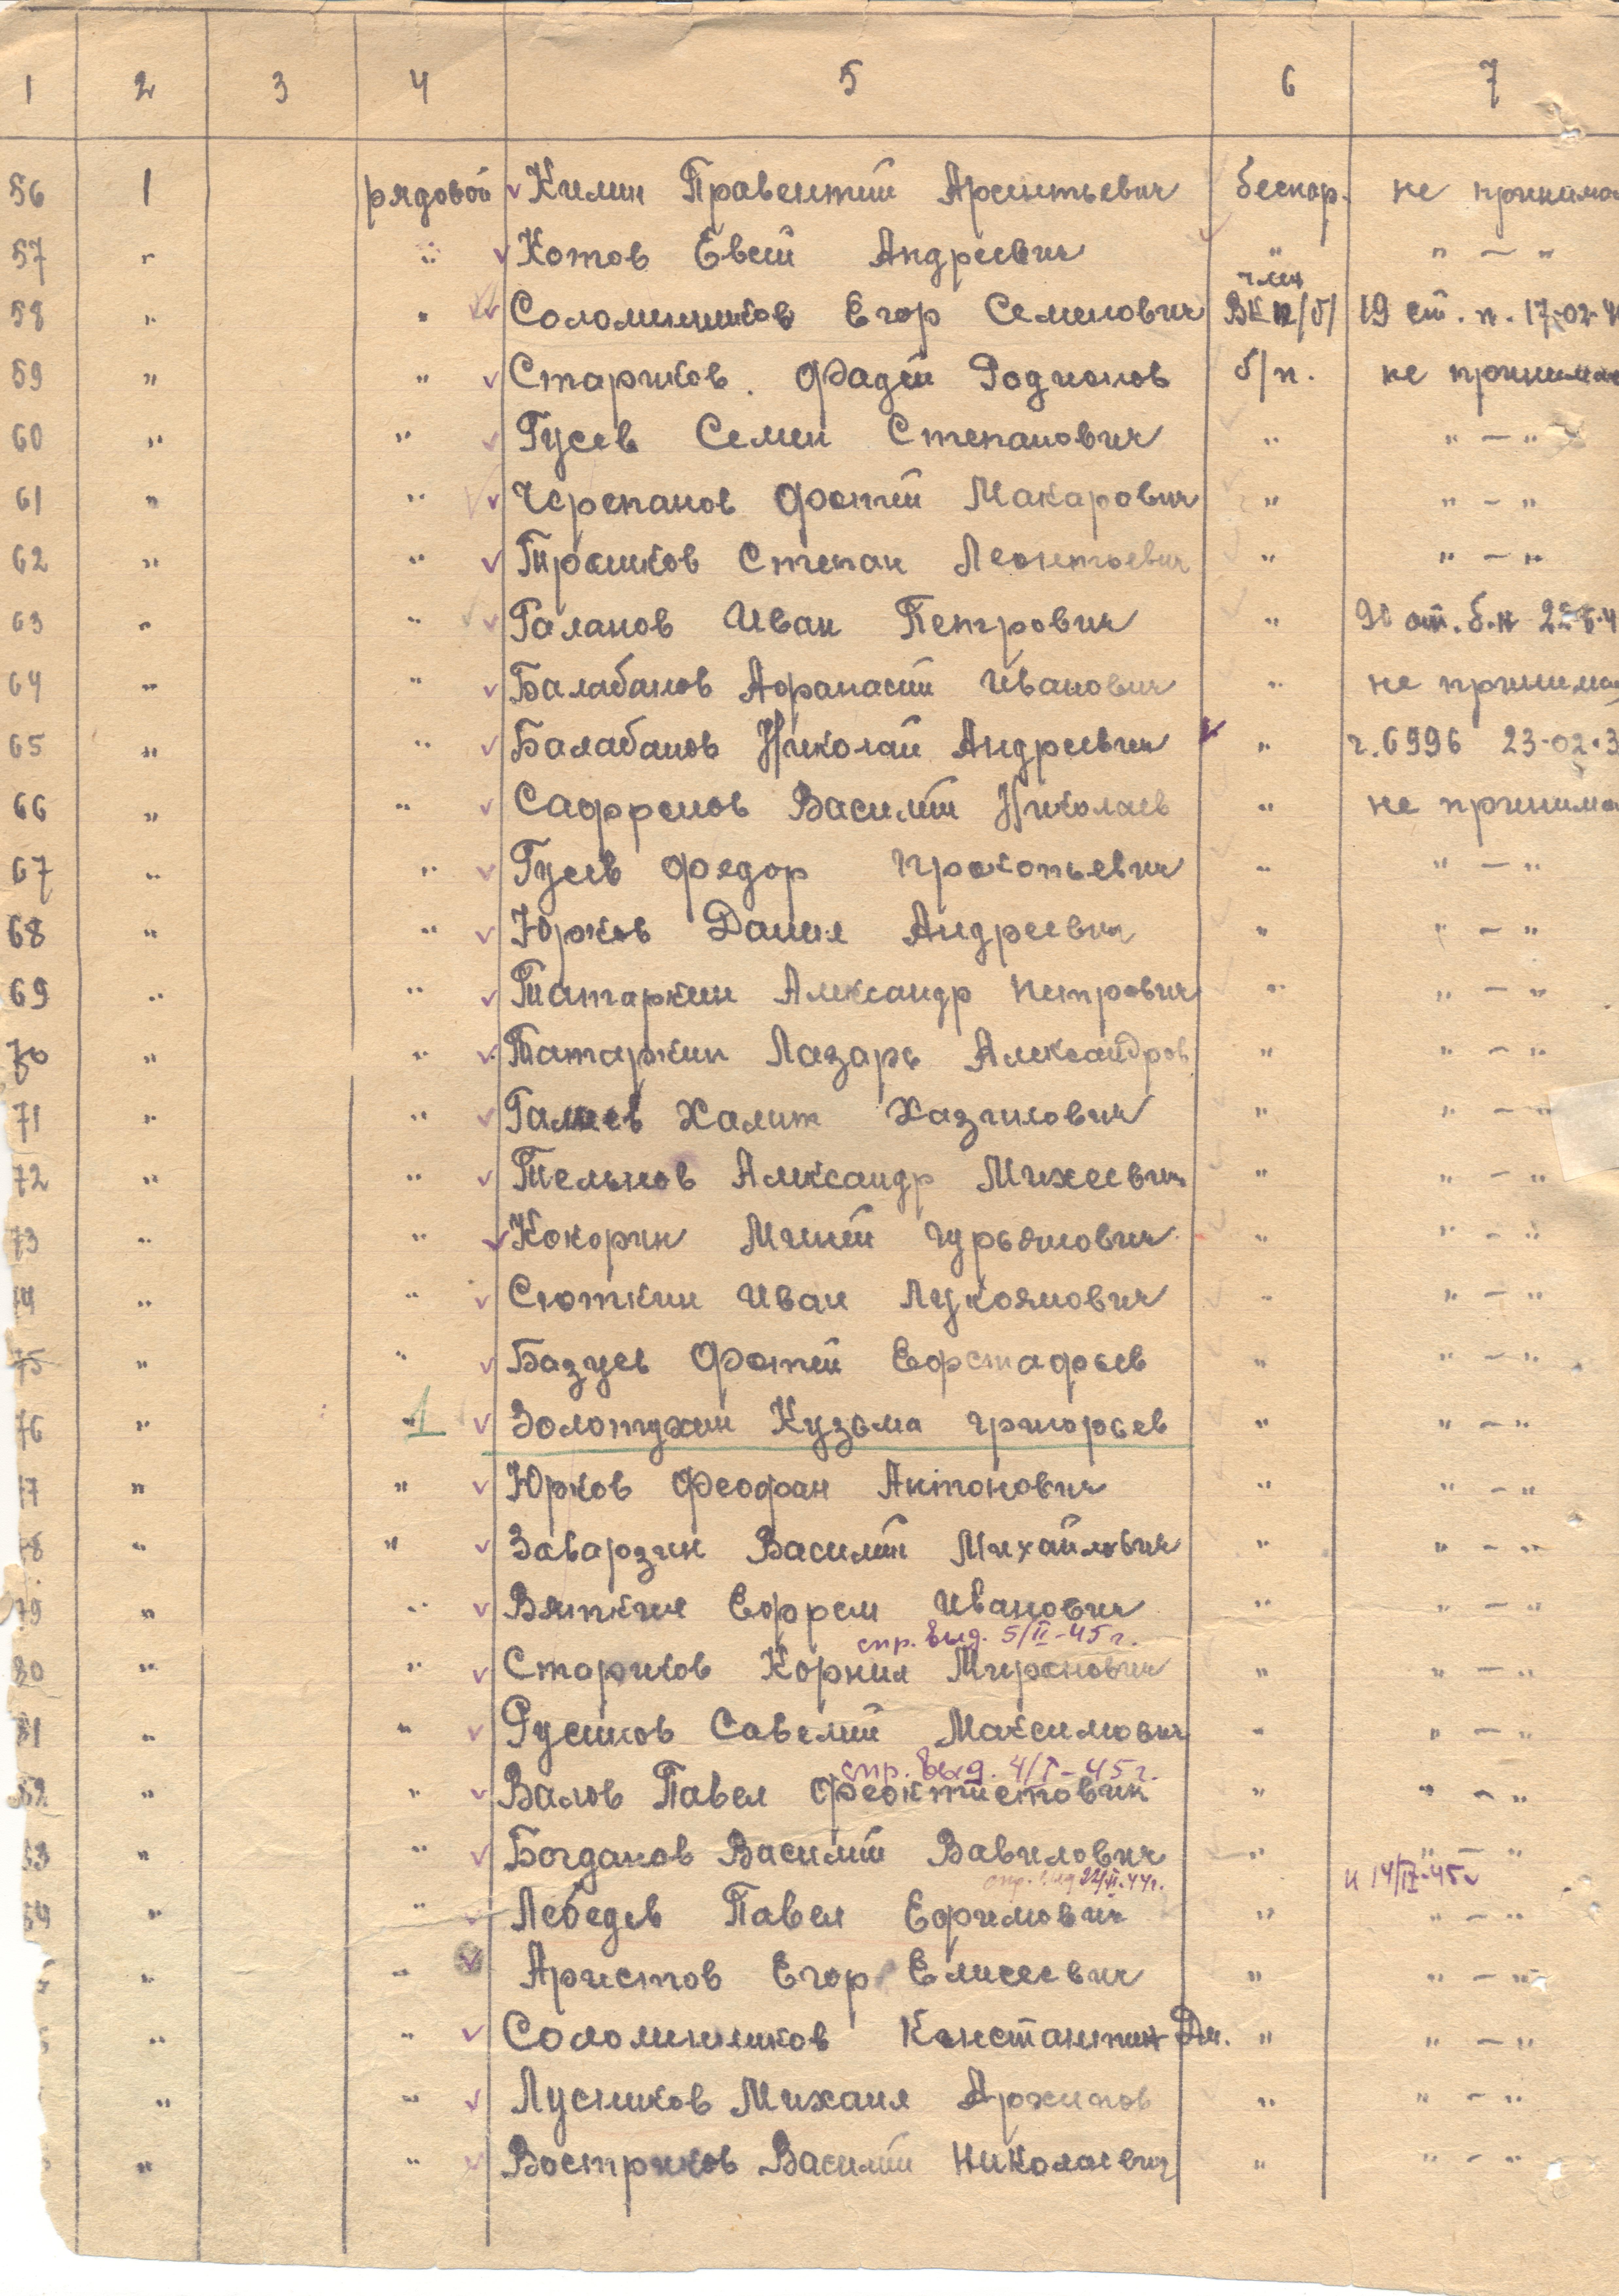 1 2 3 4 5 6 7
56 1 рядовой Килин Правентий Арсентьевич беспар. не принима
57 " " Котов Евсей Андреевич " " — "
член
58 " " Соломенников Егор Семенович ВКП/б/ 19 ст. п. 17-02-4
59 " " Стариков. Фадей Родионов б/п. не принима
60 " " Гусев Семен Степанович " " — "
61 " " Черепанов Фотий Макарович " " — "
62 " " Трошков Степан Леонтьевич " " — "
63 " " Галанов Иван Петрович "
64 " " Балабанов Афанасий Иванович " не принима
65 " " Балабанов Николай Андреевич " ч. 6996 23-02-3
66 " " Саффронов Василий Николаев " не принима
67 " " Гусев Федор Прокопьевич " " — "
68 " " Юрков Данил Андреевич " " — "
69 " " Татаркин Александр Петрович " " — "
70 " " Татаркин Лазарь Александров " " — "
71 " " Галиев Халит Хазилович " " — "
72 " " Тельнов Александр Михеевич " " — "
73 " " Кокорин Миней Гурьянович " " — "
74 " " Сюткин Иван Лукоянович " " — "
75 " " Базуев Фотий Ефстафьев " " — "
76 " 1 Золотухин Кузьма Григорьев " " — "
77 " " Юрков Феофан Антонович " " — "
78 " " Заварзин Василий Михайлович " " — "
79 " " Вяткин Ефрем Иванович " " — "
спр. выд. 5/II-45 г.
80 " " Стариков Корнил Миронович " " — "
81 " " Русинов Савелий Максимович " " — "
спр. выд. 4/I-45 г.
82 " " Валов Павел Феоктистович " " — "
83 " " Богданов Василий Вавилович " " — "
спр. выд 22/II-44г. и 14/IV-45
84 " " Лебедев Павел Ефимович " " — "
" " Аристов Егор Елисеевич " " — "
" " Соломенников Константин Дм. " " — "
" " Лусников Михаил Архипов " " — "
" " Востриков Василий Николаевич " " — "